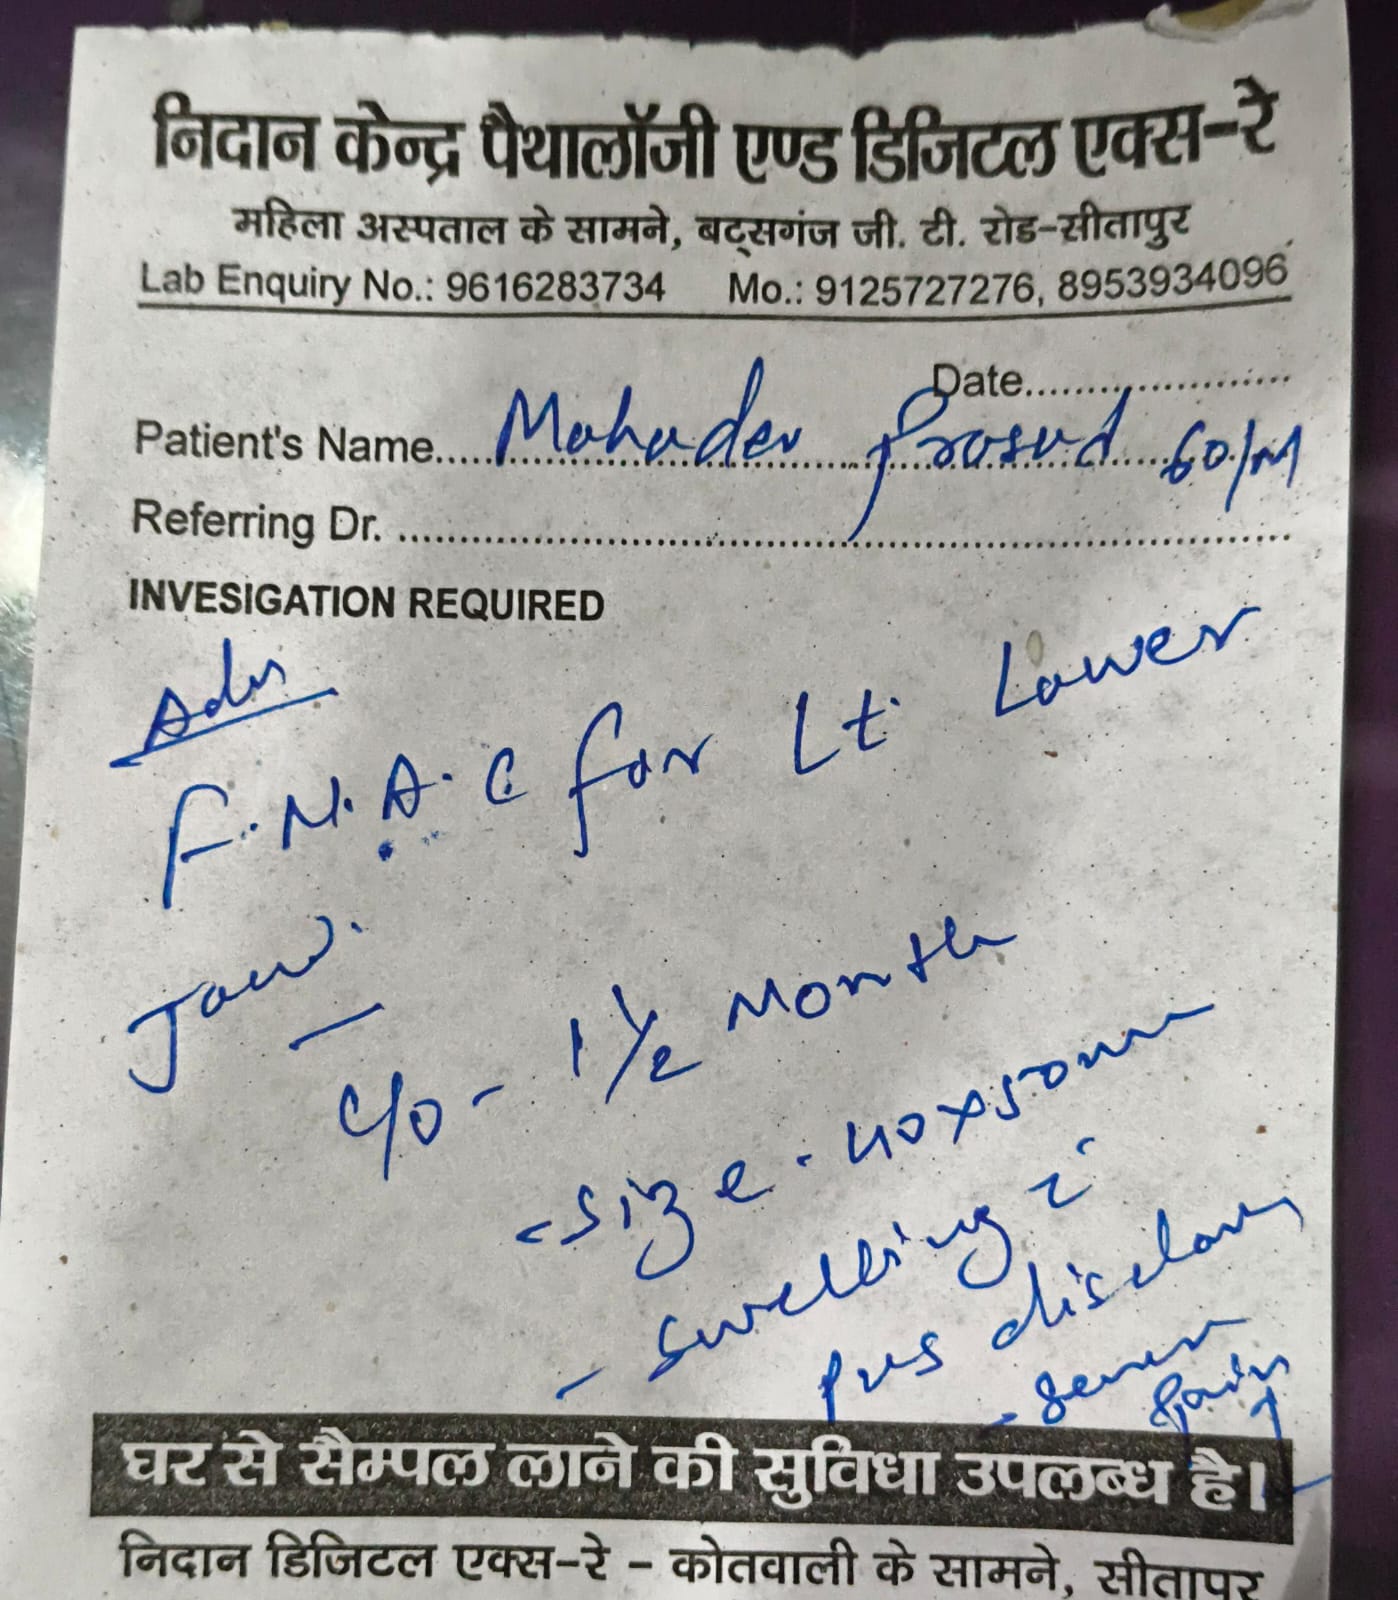 निदान केन्द्र पैथालॉजी एण्ड डिजिटल एक्स-रे
महिला अस्पताल के सामने, बट्सगंज जी. टी. रोड-सीतापुर
Lab Enquiry No.: 9616283734 Mo.: 9125727276, 8953934096
Date
Patient's Name Mahadev Prasad 60/M
Referring Dr.
INVESIGATION REQUIRED
Adv
F.N.A.C for Lt. Lower
Jaw.
C/O - 1 1/2 Month
- size - 40x50mm
- swelling c̄
pus
pain
घर से सैम्पल लाने की सुविधा उपलब्ध है।
निदान डिजिटल एक्स-रे - कोतवाली के सामने, सीतापुर